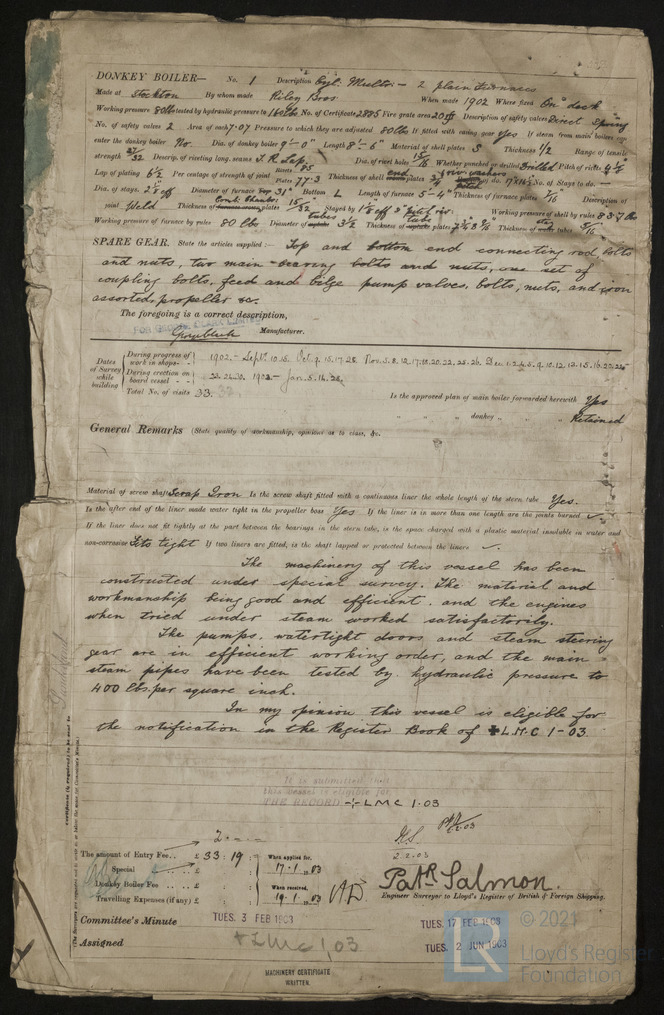 DONKEY BOILER— No. 1 Description Cyl. Multr - 2 plain furnaces
Made at Stockton By whom made Riley Bros When made 1902 Where fixed On deck
Working pressure 80lb tested by hydraulic pressure to 160lbs No. of Certificate 2805 Fire grate area 20 Description of safety valves Direct Spring
No. of safety valves 2 Area of each 7.07 Pressure to which they are adjusted 80lb If fitted with casing gear Yes If steam from main boilers can
enter the donkey boiler No. Dia. of donkey boiler 9'-0" Length 8'-6" Material of shell plates S Thickness 1/2 Range of tensile
strength 27/32 Descrip. of riveting long. seams T.R. Lap. Dia. of rivet holes 13/16 Whether punched or drilled Drilled Pitch of rivets
Lap of plating 6 1/2 Per centage of strength of joint Rivets 85 Plates 77.3 Thickness of shell end plates No. of Stays to do. —
Dia. of stays. Diameter of furnace 31" Bottom L Length of furnace 5'-4" Thickness of furnace Description of
joint Weld Thickness of Comb. Chamber plates 15/32 Stayed by Working pressure of shell by rules 83.7 lbs
Working pressure of furnace by rules 80 lbs Diameter of tubes 3 1/2 Thickness of tube plates Thickness of tubes 5/16
SPARE GEAR. State the articles supplied:— Top and bottom end connecting rod bolts
and nuts, two main bearing bolts and nuts, one set of
coupling bolts, feed and bilge pump valves, bolts, nuts, and iron
assorted, propeller &c.
The foregoing is a correct description,
Manufacturer.
Dates of Survey while building
During progress of work in shops- - 1902.- Sept. 10.16. Oct. 9. 15.17.28. Nov. 5.8.12.17.18.20.22.25.26. Dec. 1.2.4.5.9.10.12.13.15.16.20.22
During erection on board vessel - - 22.24.30. 1903.- Jan. 5.16.28.
Total No. of visits 33.
Is the approved plan of main boiler forwarded herewith Yes
" " " donkey " " " Retained
General Remarks (State quality of workmanship, opinions as to class, &c.
Material of screw shaft Scrap Iron Is the screw shaft fitted with a continuous liner the whole length of the stern tube Yes.
Is the after end of the liner made water tight in the propeller boss Yes If the liner is in more than one length are the joints burned ✓.
If the liner does not fit tightly at the part between the bearings in the stern tube, is the space charged with a plastic material insoluble in water and
non-corrosive Fits tight If two liners are fitted, is the shaft lapped or protected between the liners ✓.
The machinery of this vessel has been
constructed under special survey. The material and
workmanship being good and efficient. and the engines
when tried under steam worked satisfactorily.
The pumps. watertight doors and steam steering
gear are in efficient working order, and the main
steam pipes have been tested by hydraulic pressure to
400 lbs. per square inch.
In my opinion this vessel is eligible for
the notification in the Register Book of ✠ L.M.C 1-03
It is submitted that
this vessel is eligible for
THE RECORD + LMC 1.03
2.2.03
The amount of Entry Fee.. £ 2 . - . -
Special .. .. £ 33 : 19 :
Donkey Boiler Fee .. £
Travelling Expenses (if any) £
When applied for, 17.1.03
When received, 19.1.03
Patk Salmon.
Engineer Surveyor to Lloyd's Register of British & Foreign Shipping.
Committee's Minute TUES. 3 FEB 1903 TUES. 17 FEB 1903
Assigned + LMC 1.03 TUES. 2 JUN 1903
MACHINERY CERTIFICATE
WRITTEN.
© 2021
Lloyd's Register
Foundation
LR